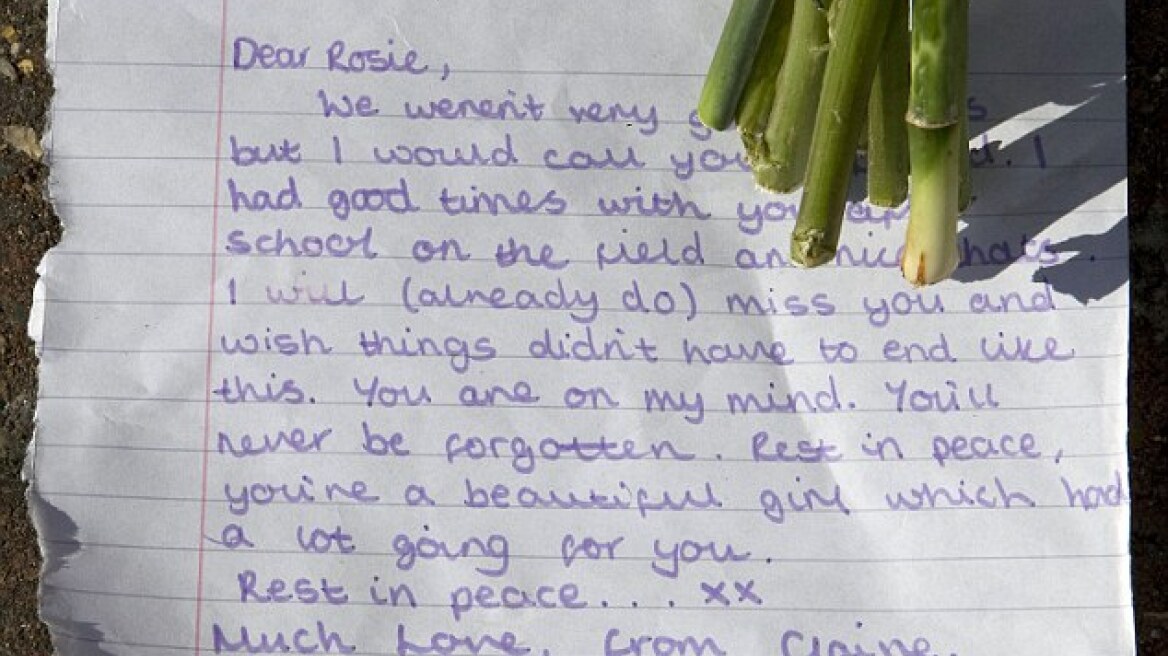 Dear Rosie,
We weren't very
but I would call you I
had good times with you
school on the field and nice chats.
I will (already do) miss you and
wish things didn't have to end like
this. You are on my mind. You'll
never be forgotten. Rest in peace,
you're a beautiful girl which had
a lot going for you.
Rest in peace.... xx
Much Love, from